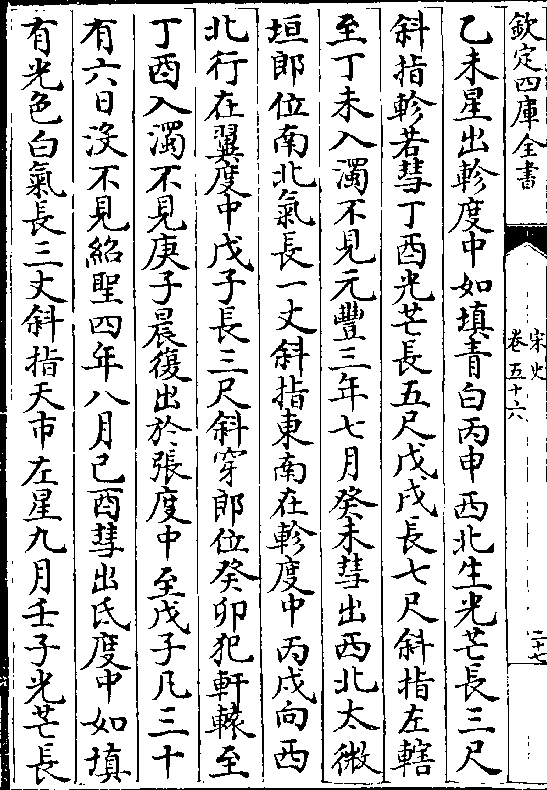 欽定四庫全書
宋史
卷五十六
二十七
乙未星出軫度中如填青白丙申西北生光芒長三尺
斜指軫若彗丁酉光芒長五尺戊戌長七尺斜指左轄
至丁未入濁不見元豐三年七月癸未彗出西北太微
垣郎位南北氣長一丈斜指東南在軫度中丙戌向西
北行在翼度中戊子長三尺斜穿郎位癸卯犯軒轅至
丁酉入濁不見庚子晨復出於張度中至戊子凡三十
有六日沒不見紹聖四年八月己酉彗出氐度中如填
有光色白氣長三丈斜指天市左星九月壬子光芒長